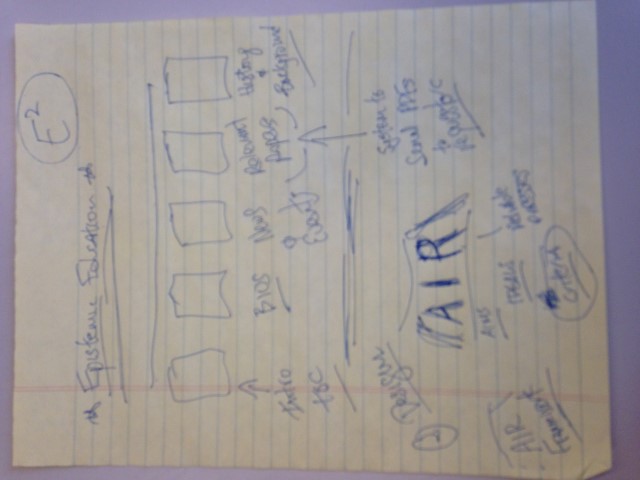 E²
Epistemic Education
Intro
BIOS
News
&
Events
Relevant
Papers
History
&
Background
System to
Send PDFs
to
② Designs
AIR
AIMS
IDEALS
Reliable
processes
Criteria
AIR